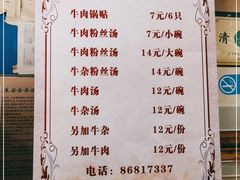 牛肉锅贴 7元/6只
牛肉粉丝汤 7元/小碗
牛肉粉丝汤 14元/大碗
牛杂粉丝汤 14元/碗
牛肉汤 12元/碗
牛杂汤 12元/碗
另加牛杂 12元/份
另加牛肉 12元/份
电话：86817337
清